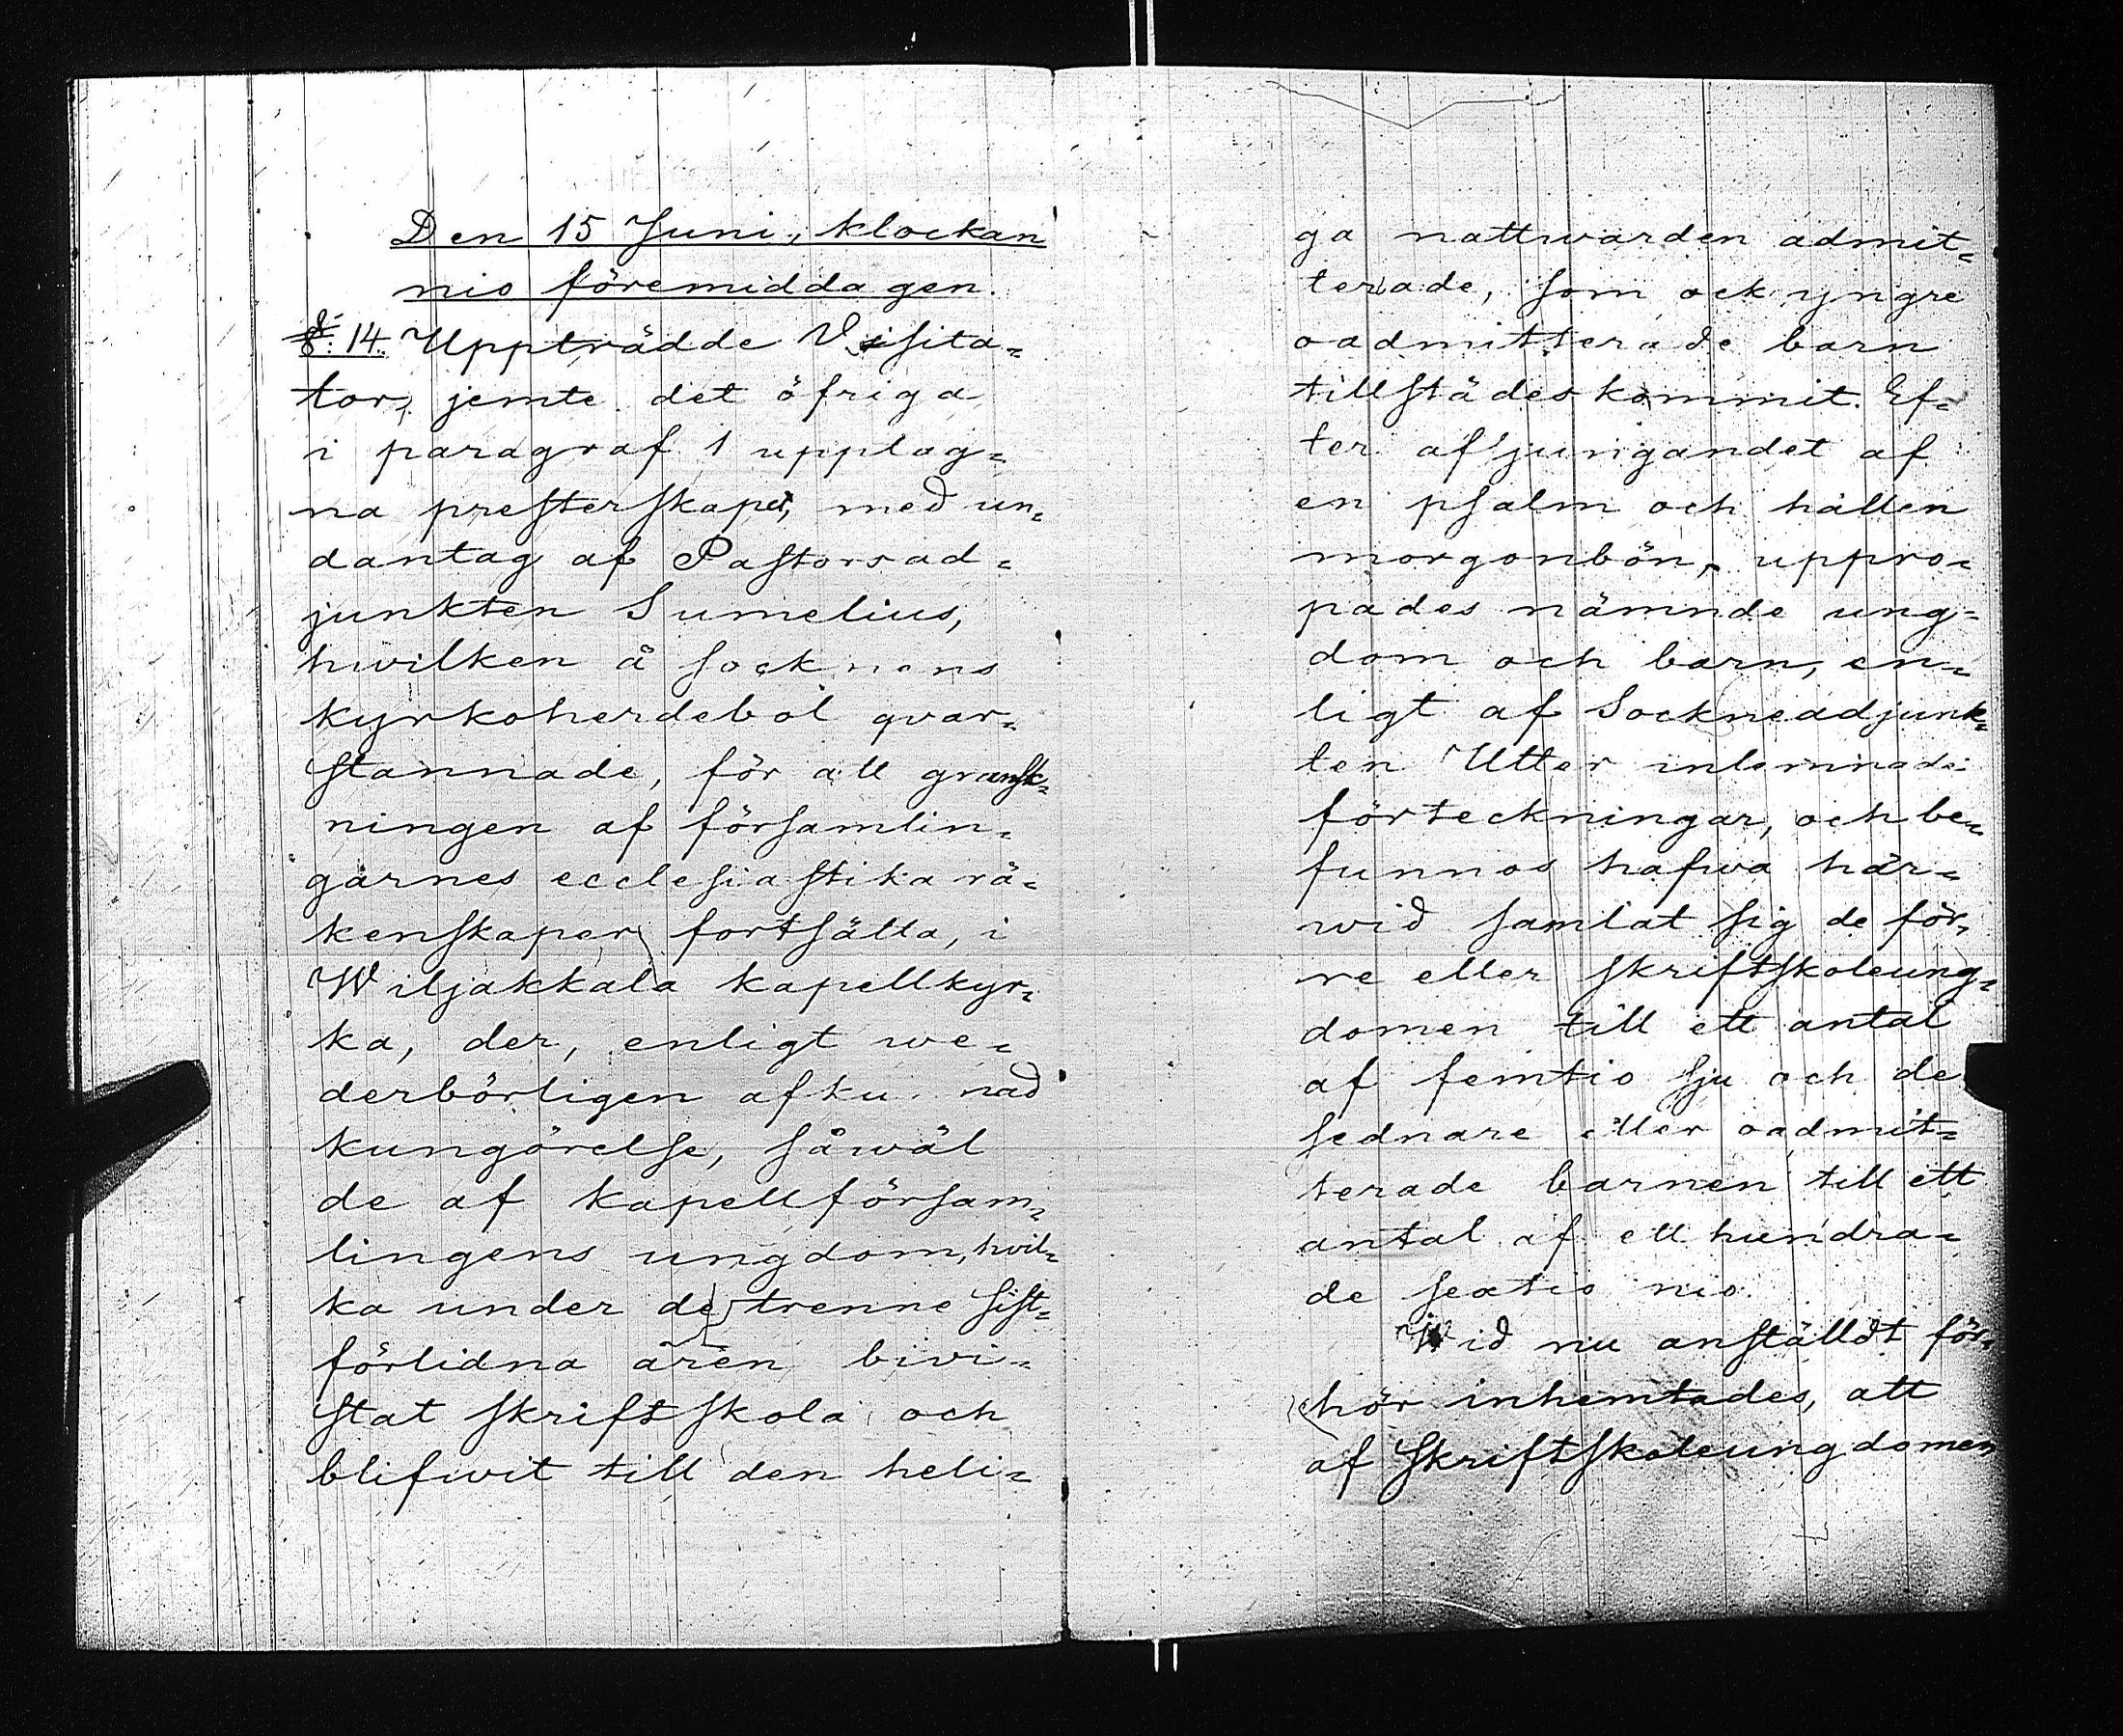 Den 15 Juni, klockan
nio föremiddagen.
§. 14. Uppträdde Visita=
tor, jemte det öfriga
i paragraf 1 upptag=
na presterskapet, med un=
dantag af Pastorsad=
junkten Sumelius,
hwilken å socknens
kyrkoherdebol qvar=
stannade, för att gransk=
ningen af församlin=
garnes ecclesiastika rä=
kenskaper fortsätta, i
Wiljakkala kapellkyr=
ka, der, enligt we=
derbörligen afkunnad
kungörelse, såwäl
de af kapellförsam=
lingens ungdom, hvil=
ka under de trenne sist=
förlidna åren bivi=
stat skriftskola och
blifwit till den heli=
ga nattwarden admit=
terade, som ock yngre
oadmitterade barn
tillstädeskommit. Ef=
ter afsjungandet af
en psalm och hållen
morgonbön, uppro=
pades nämnde ung=
dom och barn, en=
ligt af Sockneadjunk=
ten Utter inlemnade
förteckningar, och be=
funnos hafwa här=
wid samlat sig de för=
re eller skriftskoleung=
domen till ett antal
af femtio sju och de
sednare eller oadmit=
terade barnen till ett
antal af ett hundra=
de sextio nio.
Wid nu anstäldt för=
hör inhemtades, att
af Skriftskoleungdomen